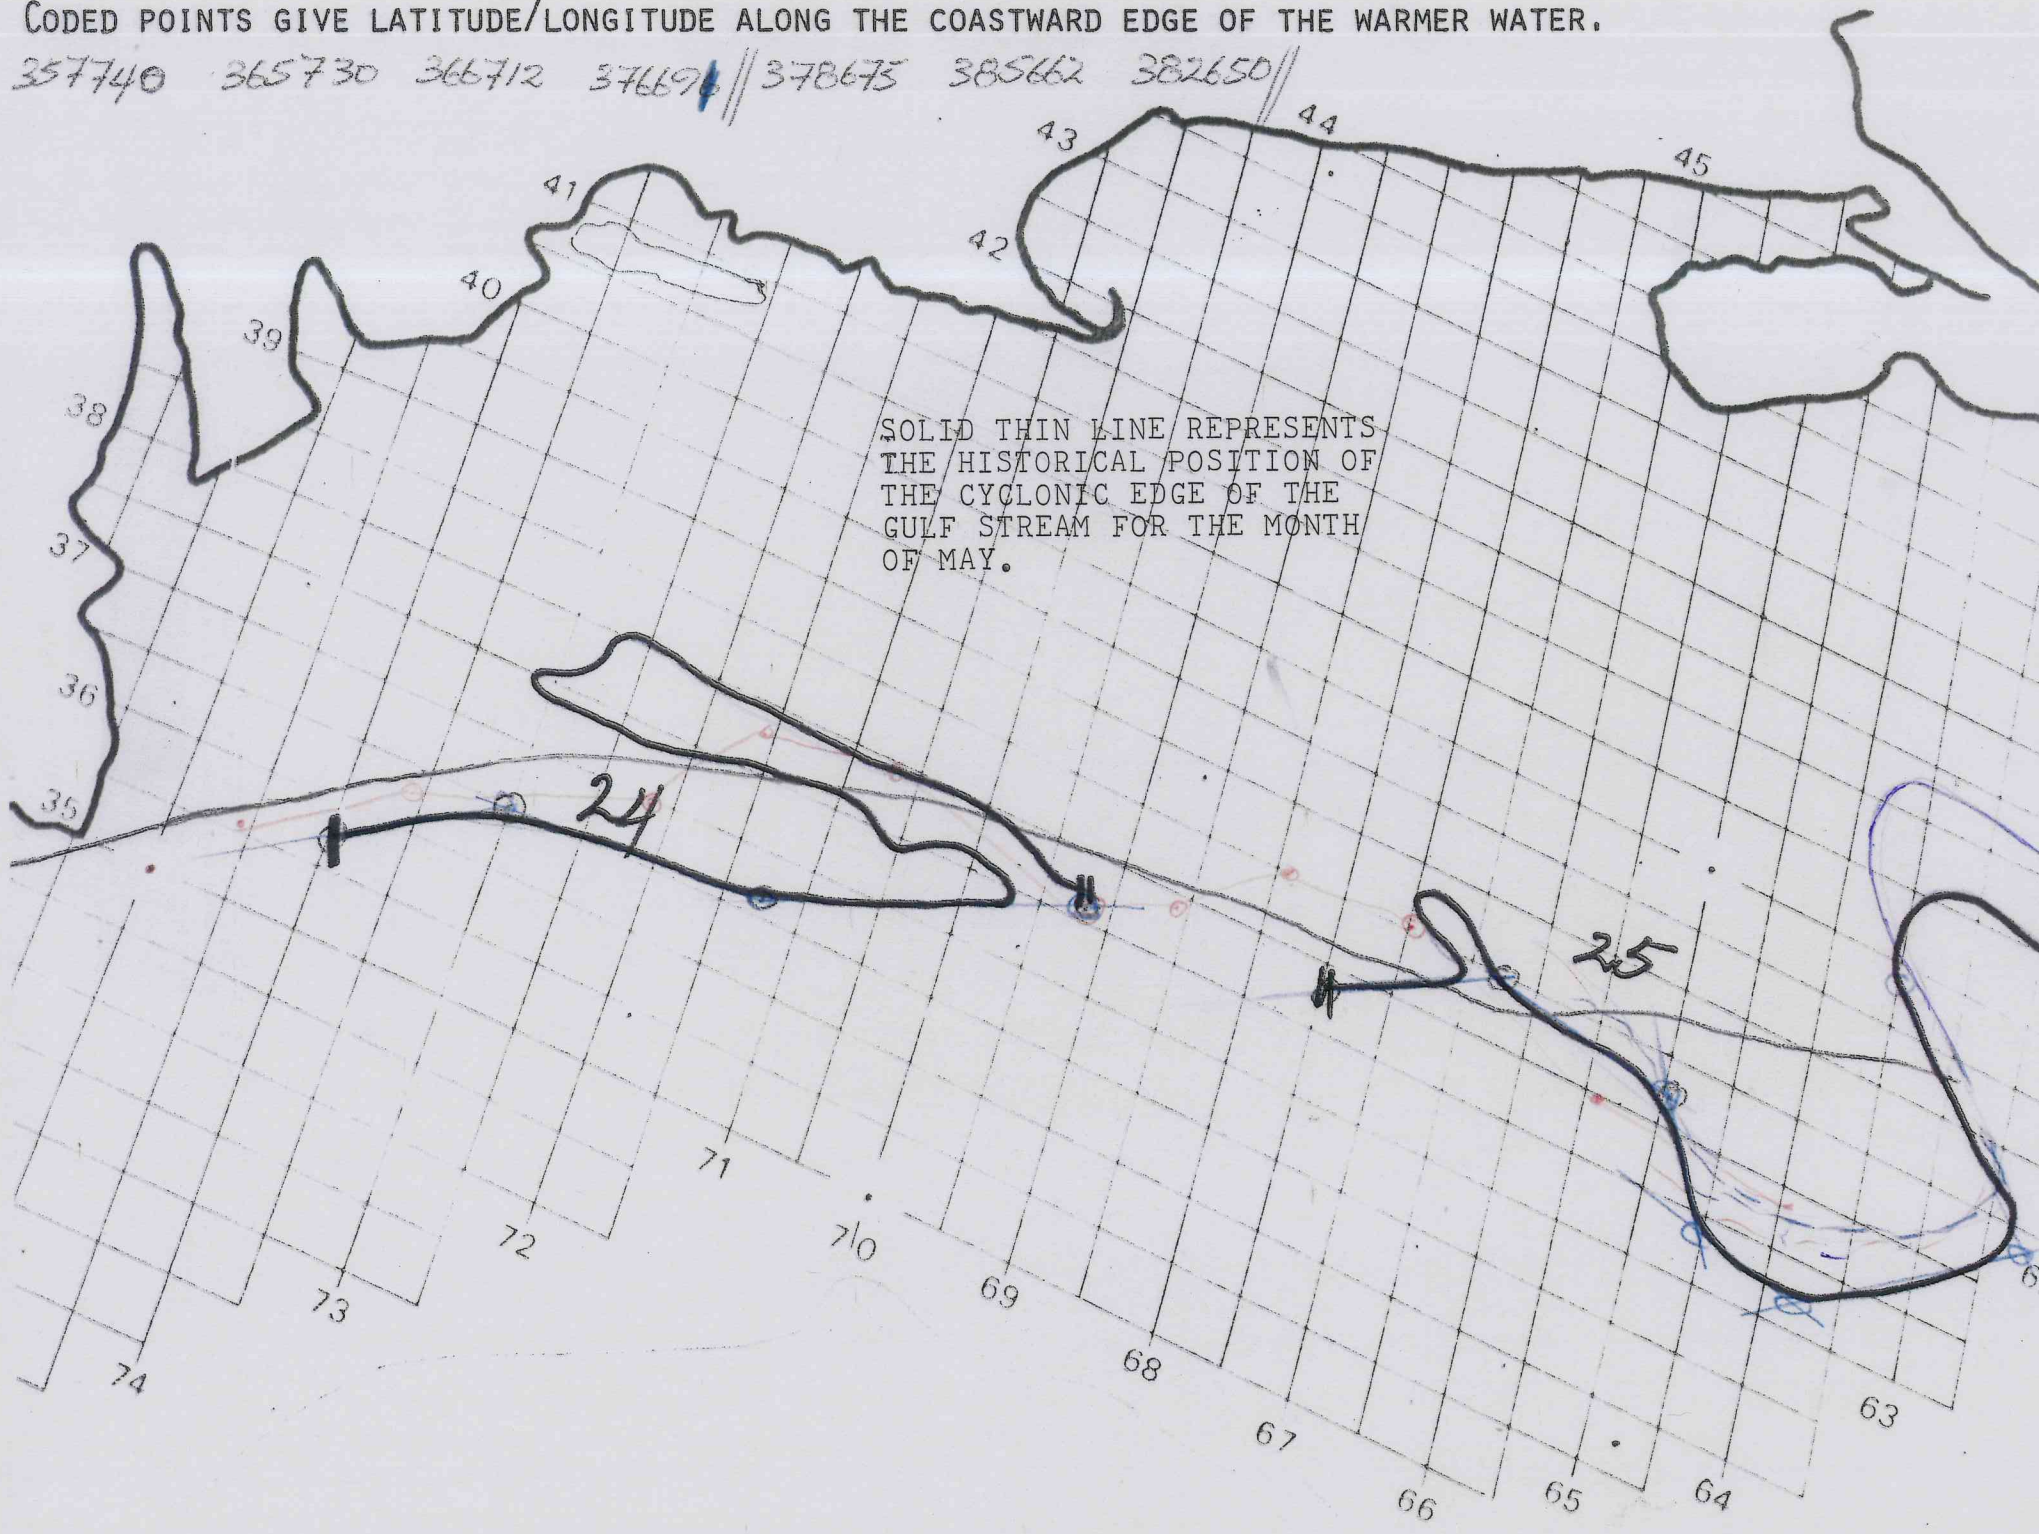 CODED POINTS GIVE LATITUDE/LONGITUDE ALONG THE COASTWARD EDGE OF THE WARMER WATER.
357740 365730 366712 376691 || 378675 385662 382650 ||
44
43
45
41
42
40
39
38
SOLID THIN LINE REPRESENTS
THE HISTORICAL POSITION OF
THE CYCLONIC EDGE OF THE
GULF STREAM FOR THE MONTH
OF MAY.
37
36
35
24
25
71
72
70
69
73
68
74
63
67
66
65
64